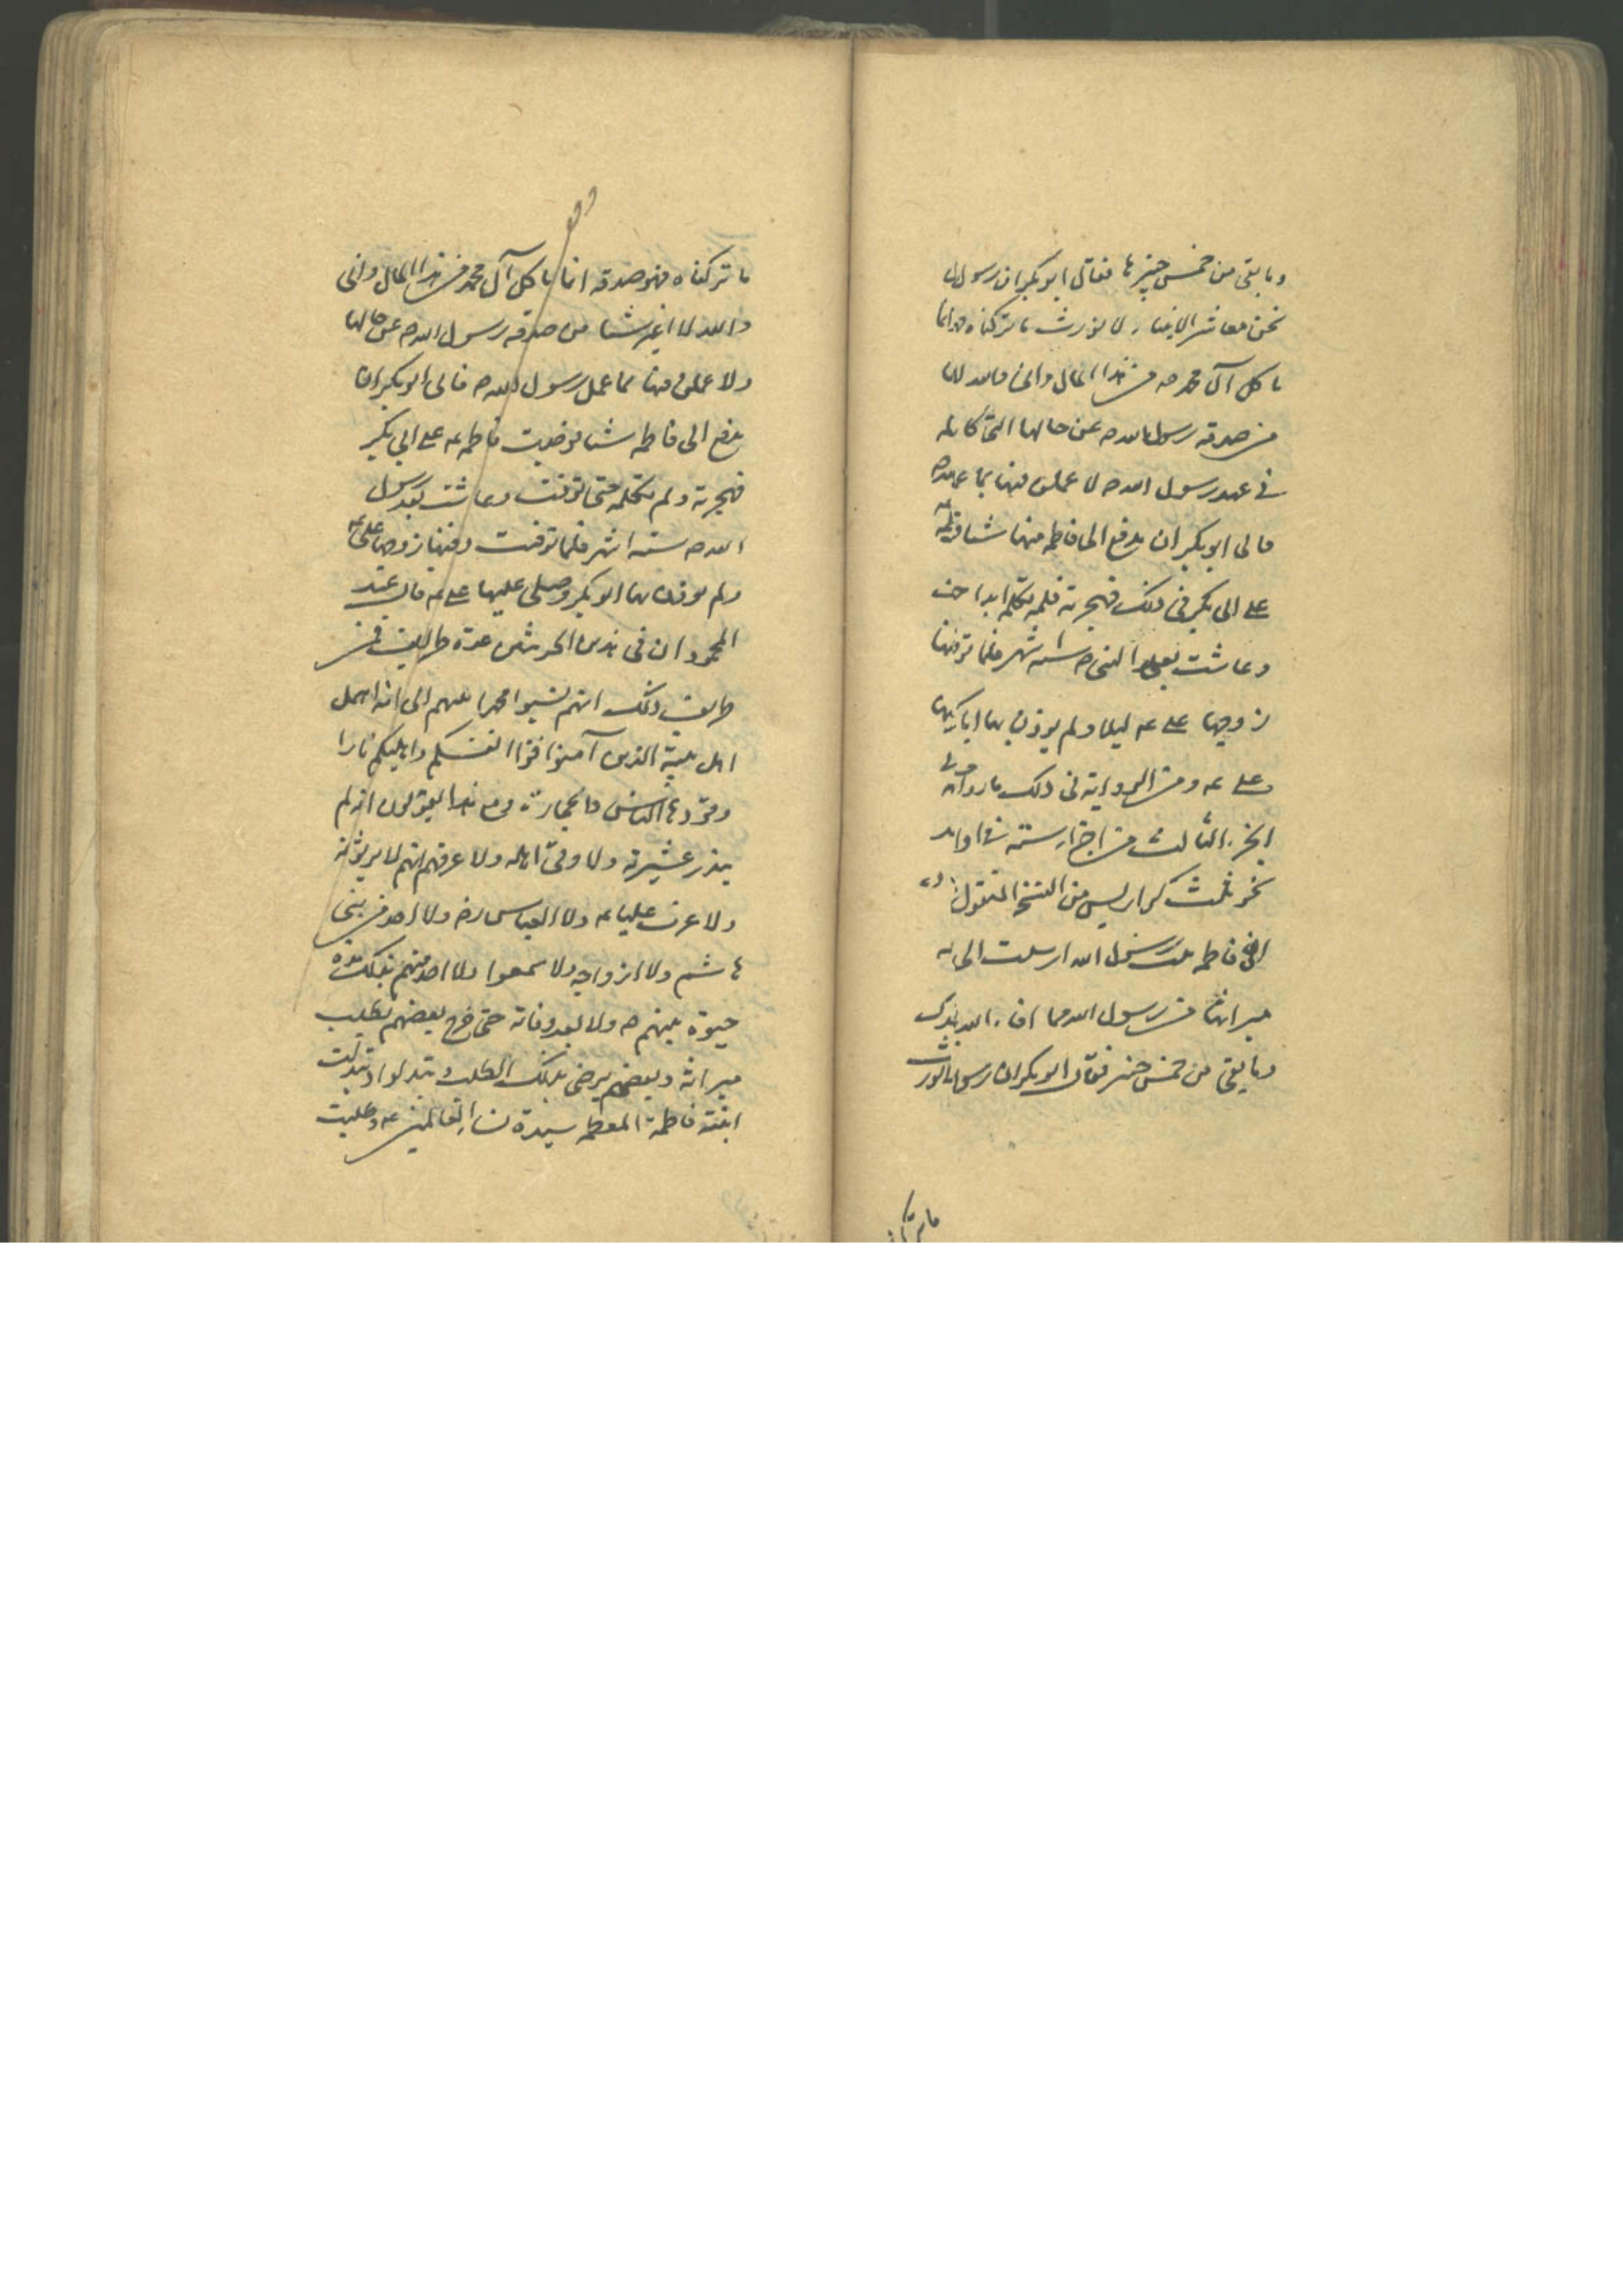 وما بقى من خمس خيبرها فقال ابو بكر ان رسول الله
نحن معاشر الانبياء لا نورث ما تركناه انما
ياكل آل محمد ص من هذا المال وانى والله لا
من صدقه رسول الله ص عن حالها التى كانت
فى عهد رسول الله ص لا عملن فيها بما عمل
فابى ابو بكر ان يدفع الى فاطمه منها شيئا
على ابى بكر فى ذلك فهجرته فلم تكلمه ابدا
وعاشت بعد النبى ص ستة اشهر فلما توفت
زوجها على ع ليلا ولم يوذن بها ابا بكر
على ع ومن الرواية فى ذلك ما رواه
الجزء الثالث من اجزاء ستة فى اواخره
نحو ثلث كراريس من النسخ المنقول
ان فاطمه بنت رسول الله ارسلت الى
ميراثها من رسول الله مما افاء الله بفدك
وما بقى من خمس خيبر فقال ابو بكر ان رسول الله لا نورث
ما تركناه
ما تركناه فهو صدقه انما ياكل آل محمد من هذا المال وانى
والله لا اغير شيئا من صدقه رسول الله ص عن حالها
ولا عملن فيها بما عمل رسول الله ص فابى ابو بكر ان
يدفع الى فاطمه شيئا فوجدت فاطمه ع على ابى بكر
فهجرته ولم تكلمه حتى توفت وعاشت بعد رسول
الله ص ستة اشهر فلما توفت دفنها زوجها على ع
ولم يوذن بها ابو بكر وصلى عليها على ع قال عبد
المحمود ان فى هذين الحديثين عدة طرايف فمن
طرايف ذلك انهم نسبوا محمدا نبيهم الى انه اهمل
اهل بيته الذين آمنوا قوا انفسكم واهليكم نارا
وقودها الناس والحجارة ومع هذا يقولون انه لم
ينذر عشيرته ولا وقى اهله ولا عرفهم انهم لا يرثونه
ولا عرف عليا ع ولا العباس رض ولا احد من بنى
هاشم ولا ازواجه ولا سمعوا ولا احد منهم بذلك مدة
حيوة نبيهم ص ولا بعد وفاته حتى خرج بعضهم يطلب
ميراثه وبعضهم يرضى بذلك الطلب وتبذلوا وتبذلت
ابنته فاطمة المعظمه سيدة نساء العالمين ع وطلبت